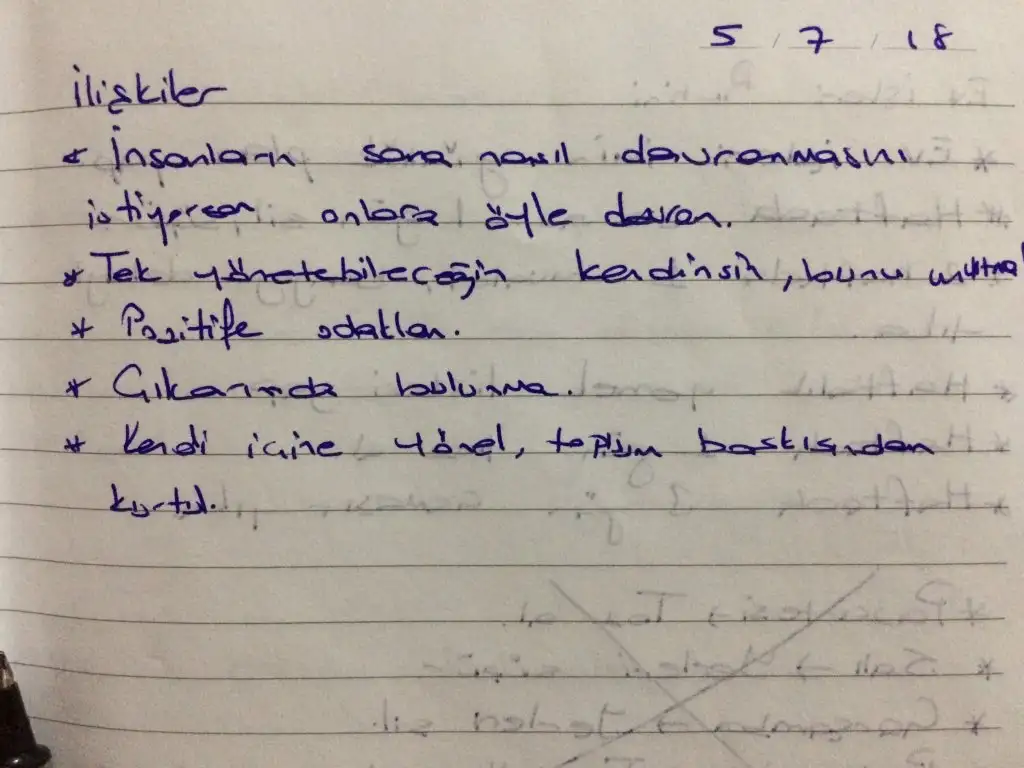 5 / 7 / 18
İlişkiler
* İnsanların sana nasıl davranmasını
istiyorsan onlara öyle davran.
* Tek yönetebileceğin kendinsin, bunu unutma!
* Pozitife odaklan.
* Çıkarımda bulunma.
* Kendi içine yönel, toplum baskısından
kurtul.